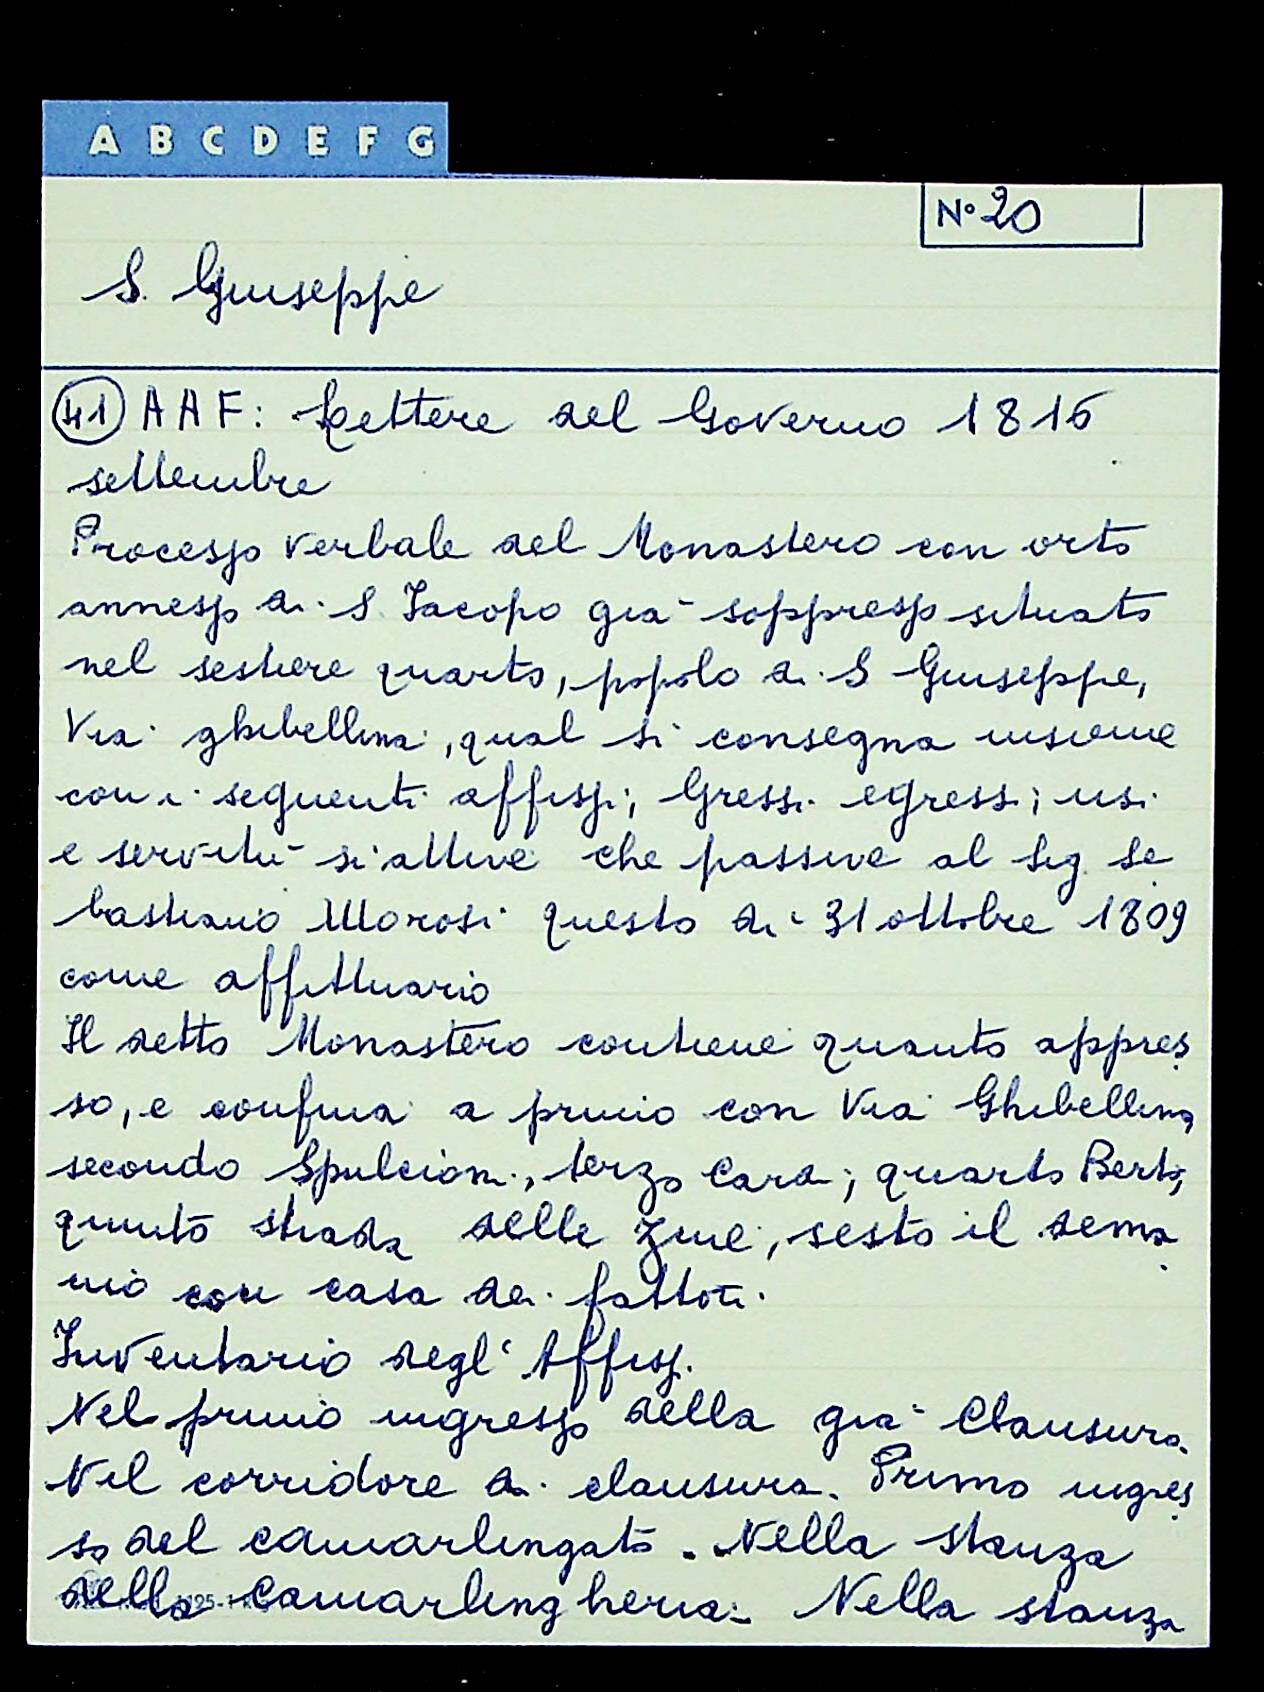 A B C D E F G
N° 20
S. Giuseppe
41 AAF: Lettere del Governo 1816
settembre
Processo verbale del Monastero con orto
annesso di S. Jacopo già soppresso situato
nel sestiere quarto, popolo di S Giuseppe,
Via ghibellina, qual si consegna insieme
con i seguenti affissi; Gressi egressi; usi
e servitù sì attive che passive al Sig. Se
bastiano Morosi questo dì 31 ottobre 1809
come affittuario
Il detto Monastero contiene quanto appres
so, e confina a primo con Via Ghibellina
secondo Spulcioni, terzo Cardi; quarto Berti;
quinto strada delle Zine, sesto il dema
nio con casa dei fattori.
Inventario degl' Affissi.
Nel primo ingresso della già Clausura.
Nel corridore di clausura. Primo ingres
so del camarlingato. Nella stanza
della Camarlingheria. Nella stanza